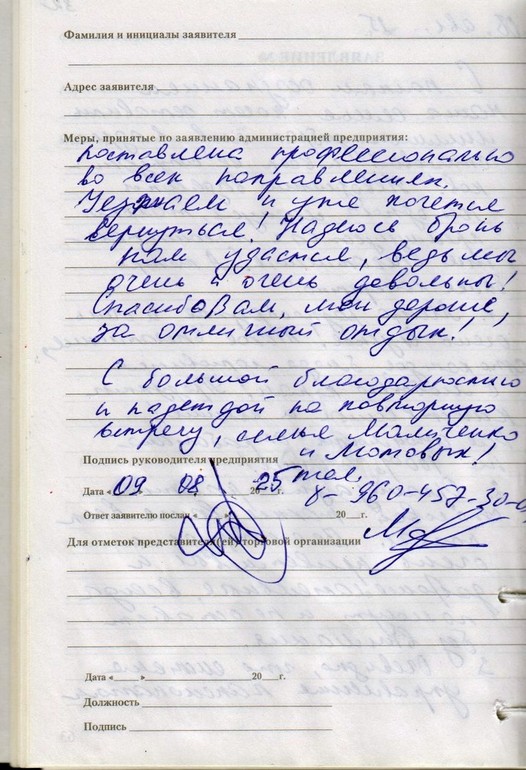 Фамилия и инициалы заявителя
Адрес заявителя
Меры, принятые по заявлению администрацией предприятия:
поставлена профессионально
во всех направлениях.
Уезжаем и уже хочется
вернуться! Надеюсь бронь
нам удастся, ведь мы
очень и очень довольны!
Спасибо Вам, мои дорогие,
за отличный отдых!
С большой благодарностью
и надеждой на повторную
встречу, семья Маличенко
и Мотовых!
Подпись руководителя предприятия
тел.
Дата « 09 08 20 25
8-960-457-30-
Ответ заявителю послан « » 20 г.
Для отметок представителя(ей) торговой организации
Дата « » 20 г.
Должность
Подпись